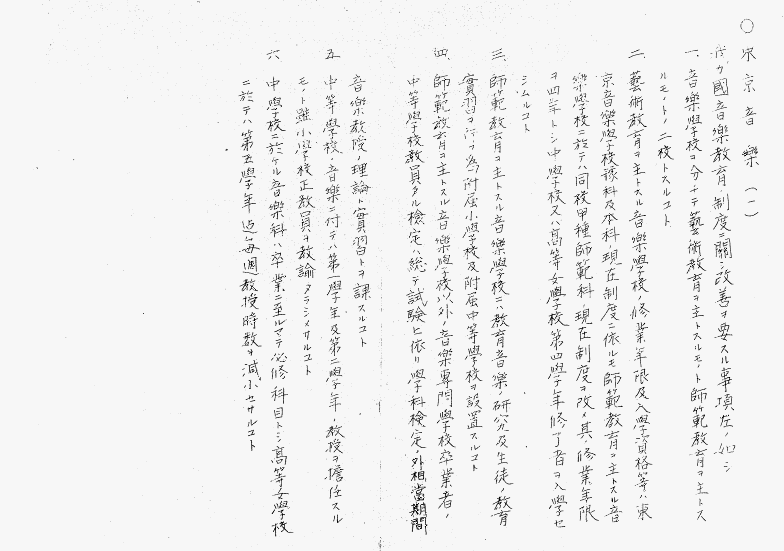 ○東京音樂(一)
我カ國音樂教育ノ制度ニ關シ改善ヲ要スル事項左ノ如シ
一、音樂學校ヲ分チテ藝術教育ヲ主トスルモノト師範教育ヲ主トス
ルモノトノ二種トスルコト
二、藝術教育ヲ主トスル音樂學校ノ修業年限及入學資格等ハ東
京音樂學校豫科及本科ノ現在制度ニ依ルモ師範教育ヲ主トスル音
樂學校ニ於テハ同校甲種師範科ノ現在制度ヲ改メ其ノ修業年限
ヲ四年トシ中學校又ハ高等女學校第四學年修了者ヲ入學セ
シムルコト
三、師範教育ヲ主トスル音樂學校ニハ教育音樂ノ研究及生徒ノ教育
實習ヲ行フ為ノ附屬小學校及附屬中等學校ヲ設置スルコト
四、師範教育ヲ主トスル音樂學校以外ノ音樂專門學校卒業者ノ
中等學校教員タル檢定ハ総テ試験ニ依リ學科檢定ノ外相當期間
音樂教授ノ理論ト實習トヲ課スルコト
五、中等學校ノ音樂ニ付テハ第一學年及第二學年ノ教授ヲ擔任スル
モノト雖小學校正教員ヲ教諭タラシメサルコト
六、中學校ニ於ケル音樂科ハ卒業ニ至ルマテ必修科目トシ高等女學校
ニ於テハ第五學年迄毎週教授時数ヲ減少セサルコト